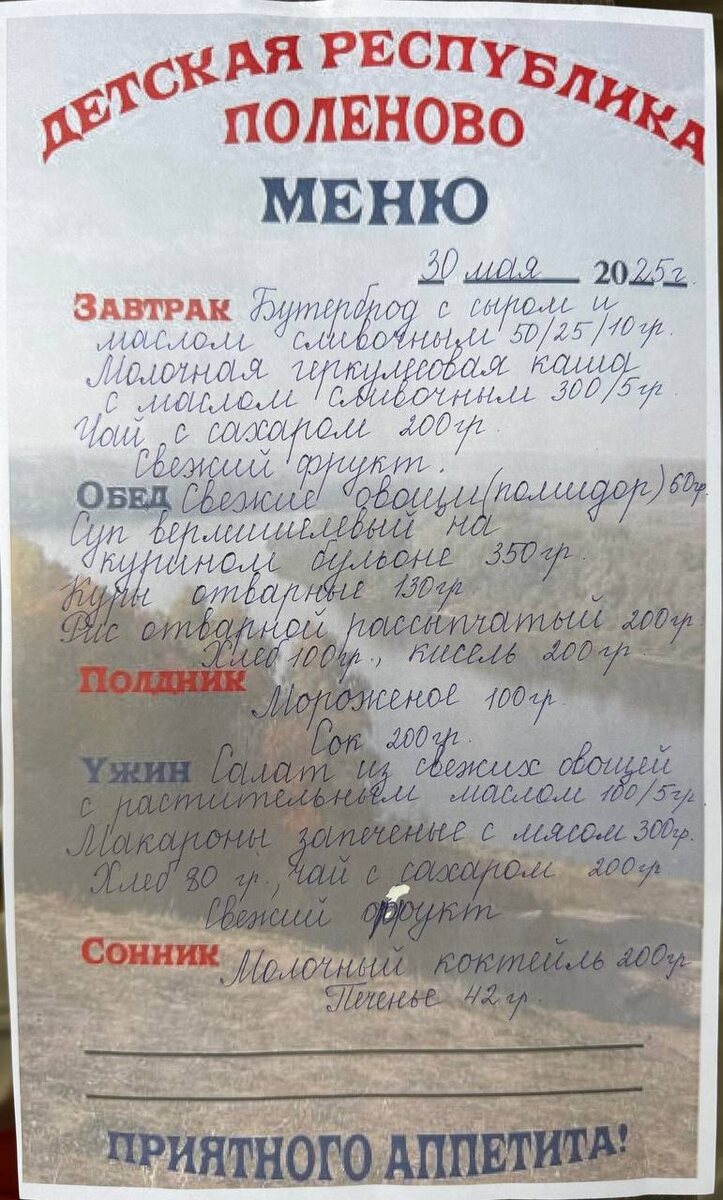 ДЕТСКАЯ РЕСПУБЛИКА
ПОЛЕНОВО
МЕНЮ
30 мая 2025г.
ЗАВТРАК Бутерброд с сыром и
маслом сливочным 50/25/10гр.
Молочная геркулесовая каша
с маслом сливочным 300/5гр.
Чай с сахаром 200гр.
Свежий фрукт.
ОБЕД Свежие овощи(помидор) 60гр.
Суп вермишелевый на
курином бульоне 350гр.
Куры отварные 130гр.
Рис отварной рассыпчатый 200гр.
Хлеб 100гр., кисель 200гр.
ПОЛДНИК
Мороженое 100гр.
Сок 200гр.
УЖИН Салат из свежих овощей
с растительным маслом 100/5гр.
Макароны запеченые с мясом 300гр.
Хлеб 80 гр., чай с сахаром 200гр
Свежий фрукт
СОННИК Молочный коктейль 200гр
Печенье 42гр.
ПРИЯТНОГО АППЕТИТА!